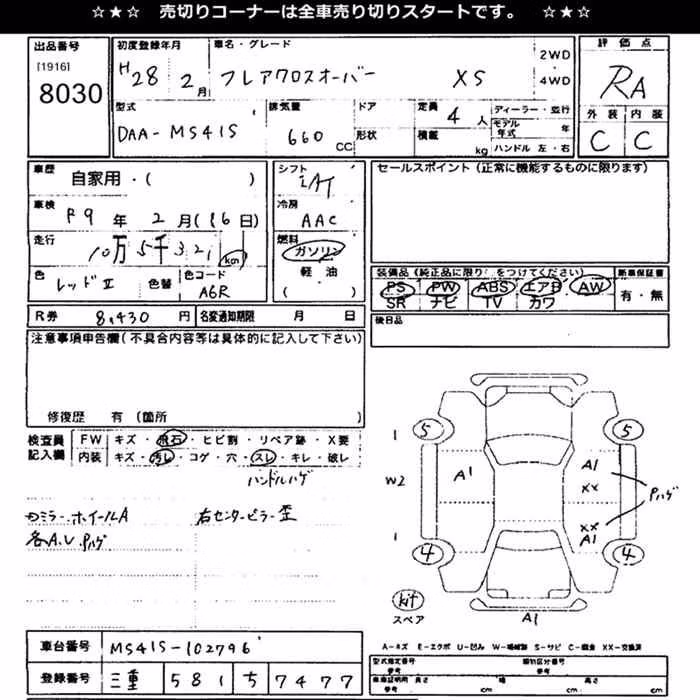 ☆★☆ 売切りコーナーは全車売り切りスタートです。 ☆★☆
出品番号 初度登録年月 車名・グレード 評価点
[1916] 8030
H28年2月 フレアクロスオーバー XS 2WD・4WD RA
型式 排気量 ドア 定員 4人 ディーラー・並行 外装 内装
DAA-MS41S 660cc 形状 積載 kg モデル年式 年 C C
ハンドル 左・右
車歴 自家用・( ) シフト IAT セールスポイント(正常に機能するものに限ります)
車検 R9年2月(16日) 冷房 AAC
走行 10万5千321km 燃料 ガソリン
軽油
( )
色 レッドII 色替 色コード A6R
装備品(純正品に限り○をつけてください) 新車保証書
PS PW ABS エアB AW 有・無
SR ナビ TV カワ
R券 8,430円 名変通知期限 月 日 後日品
注意事項申告欄(不具合内容等は具体的に記入して下さい)
修復歴 有(箇所
検査員記入欄 FW キズ・飛石・ヒビ割・リペア跡・X要
内装 キズ・汚レ・コゲ・穴・スレ・キレ・破レ
ハンドルハゲ
ミラー・ホイールA 右センターピラー歪
各A.U.Pハゲ
1 5 5
W2 A1 A1 XX Pハゲ
XX A1
1 4 4
kit
スペア A1
A-キズ E-エクボ U-凹み W-補修跡 S-サビ C-腐食 XX-交換済
車台番号 MS41S-102796
登録番号 三重 581 ち 7477
型式指定番号 参考 類別区分番号 参考
車庫証明用 参考 長さ cm 幅 cm 高さ cm